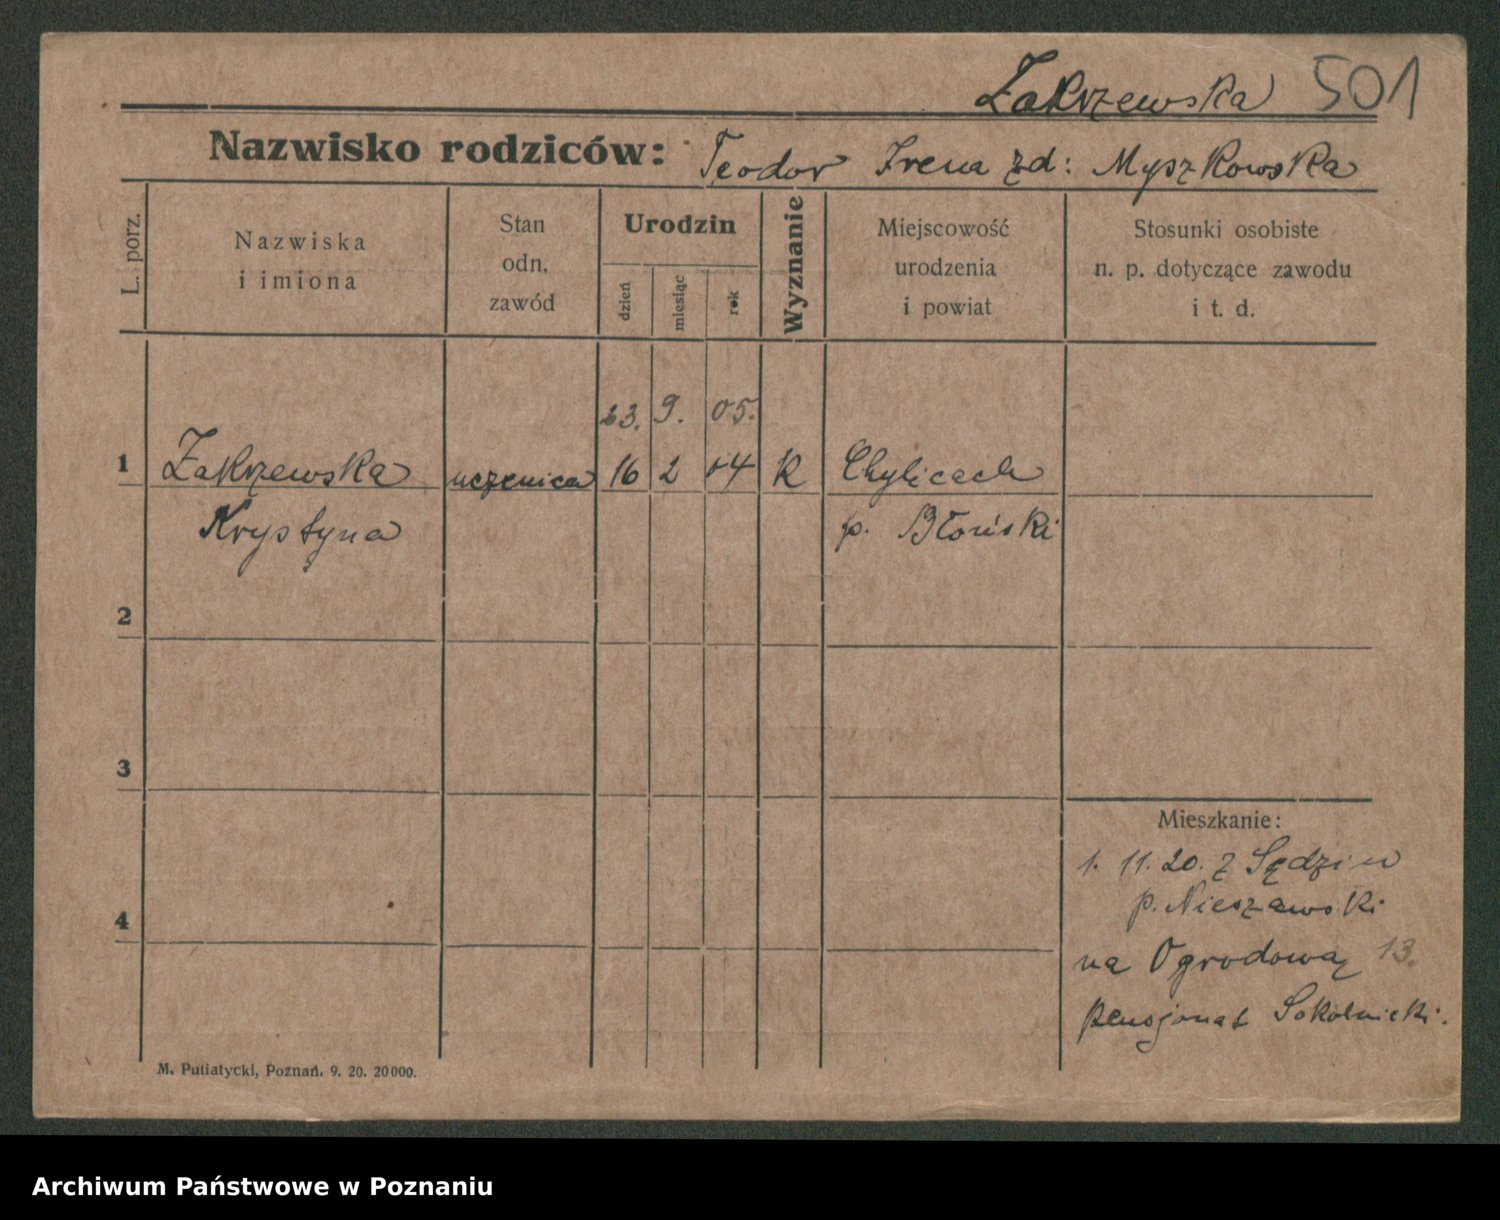 Zakrzewska 501
Nazwisko rodziców: Teodor Irena zd: Myszkowska
L. porz.
Nazwiska
i imiona
Stan
odn.
zawód
Urodzin
dzień
miesiąc
rok
Wyznanie
Miejscowość
urodzenia
i powiat
Stosunki osobiste
n. p. dotyczące zawodu
i t. d.
23. 9. 05.
1 Zakrzewska uczenica 16 2 04 K Chylicach
Krystyna p. Błoński
2
3
4
Mieszkanie:
1. 11. 20. z Sędzin
p. Nieszawski
na Ogrodową 13.
pensjonat Sokolnicki.
M. Putiatycki, Poznań. 9. 20. 20000.
Archiwum Państwowe w Poznaniu